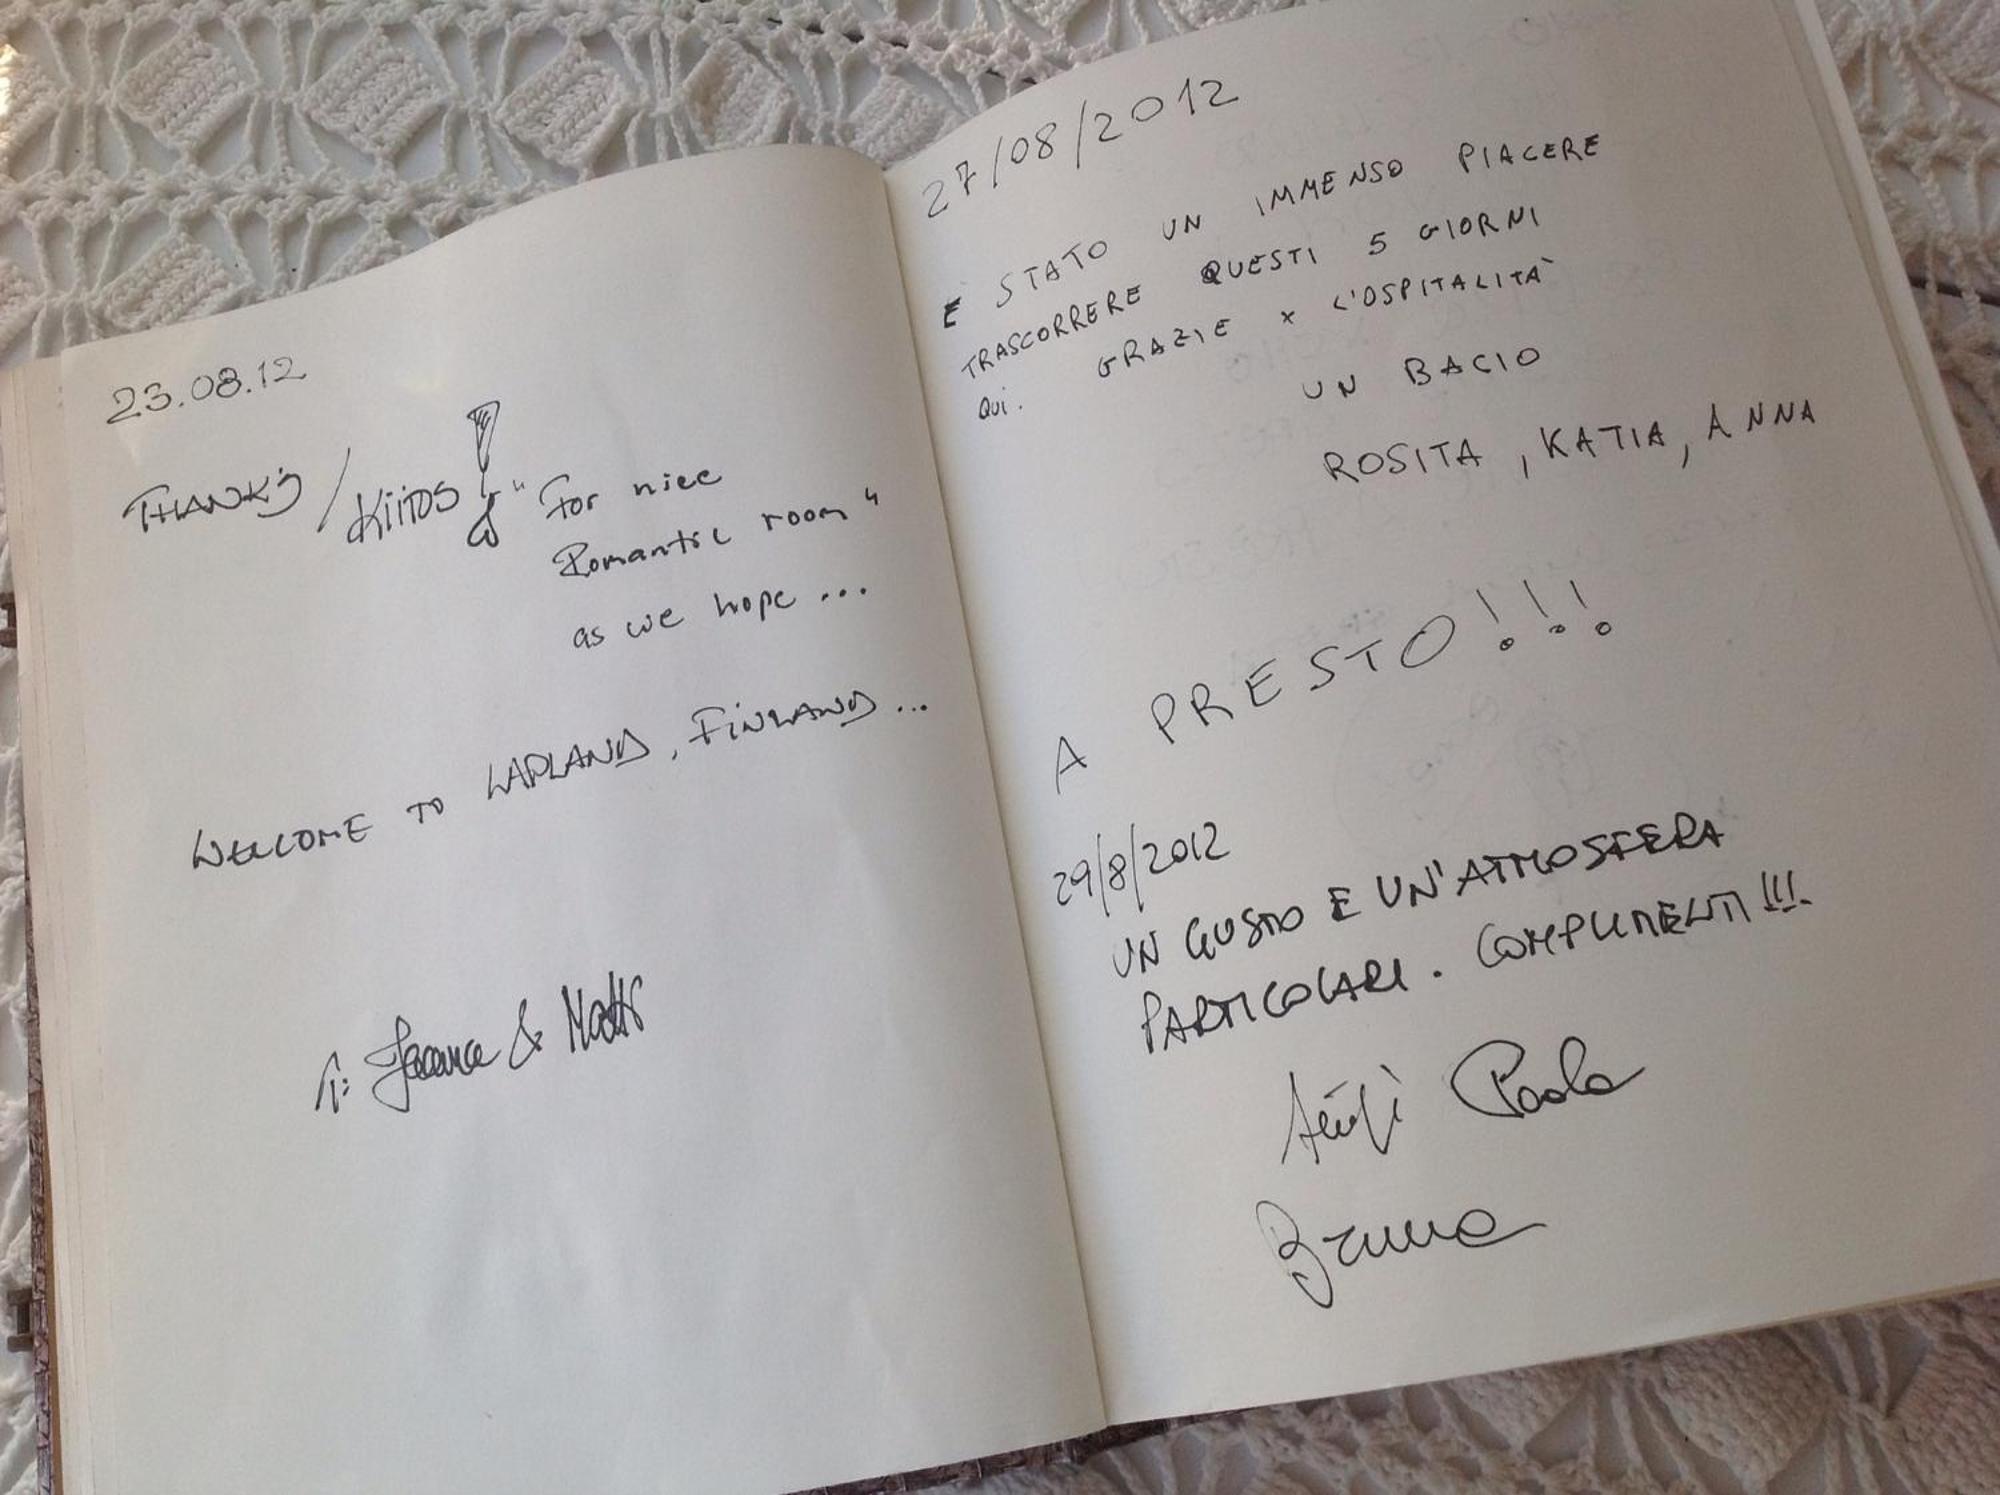 23.08.12
THANKS / KiiTOS! "For nice
Romantic room"
as we hope ...
WELCOME TO LAPLAND, FINLAND ...
T: & Matti
27/08/2012
E STATO UN IMMENSO PIACERE
TRASCORRERE QUESTI 5 GIORNI
QUI. GRAZIE x L'OSPITALITÀ
UN BACIO
ROSITA, KATIA, ANNA
A PRESTO!!!
29/8/2012
UN GUSTO E UN'ATMOSFERA
PARTICOLARI. COMPLIMENTI!!!
Paola
Bruna